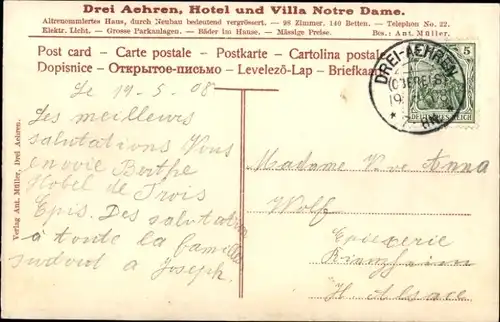 Drei Aehren, Hotel und Villa Notre Dame.
Altrenommiertes Haus, durch Neubau bedeutend vergrössert. — 98 Zimmer. 140 Betten. — Telephon No. 22.
Elektr. Licht. — Grosse Parkanlagen. — Bäder im Hause. — Mässige Preise. Bes.: Ant. Müller.
Post card — Carte postale — Postkarte — Cartolina postale
Dopisnice — Открытое-письмо — Levelező-Lap — Briefkaart
DREI-AEHREN
(OBERELS.)
19
7-8N.
5
DEUTSCHES REICH
Le 19-5-08
Les meilleurs
salutations Vous
envoie Berthe
Hotel de Trois
Epis. Des salutations
à toute la famille
surtout a Joseph.
Madame V.ve Anna
Wolf
Epicerie
H. Alsace
Verlag Ant. Müller, Drei Aehren.